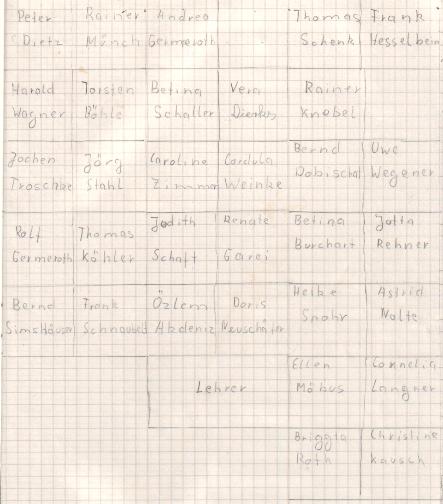 Peter Rainer Andrea Thomas Frank
Dietz Münch Germeroth Schenk Hesselbein
Harald Torsten Betina Vera Rainer
Wagner Böhle Schaller Dienkes Knobel
Jochen Jörg Caroline Cordula Bernd Uwe
Troschke Stahl Zimmer Weinke Dobischat Wegener
Rolf Thomas Judith Renate Betina Jutta
Germeroth Köhler Schaft Garei Burchart Rehner
Bernd Frank Özlem Doris Heike Astrid
Simshäuser Schnaubelt Akdeniz Neuschäfer Spohr Nolte
Ellen Cornelia
Lehrer Möbus Langner
Briggta Christine
Roth Kausch